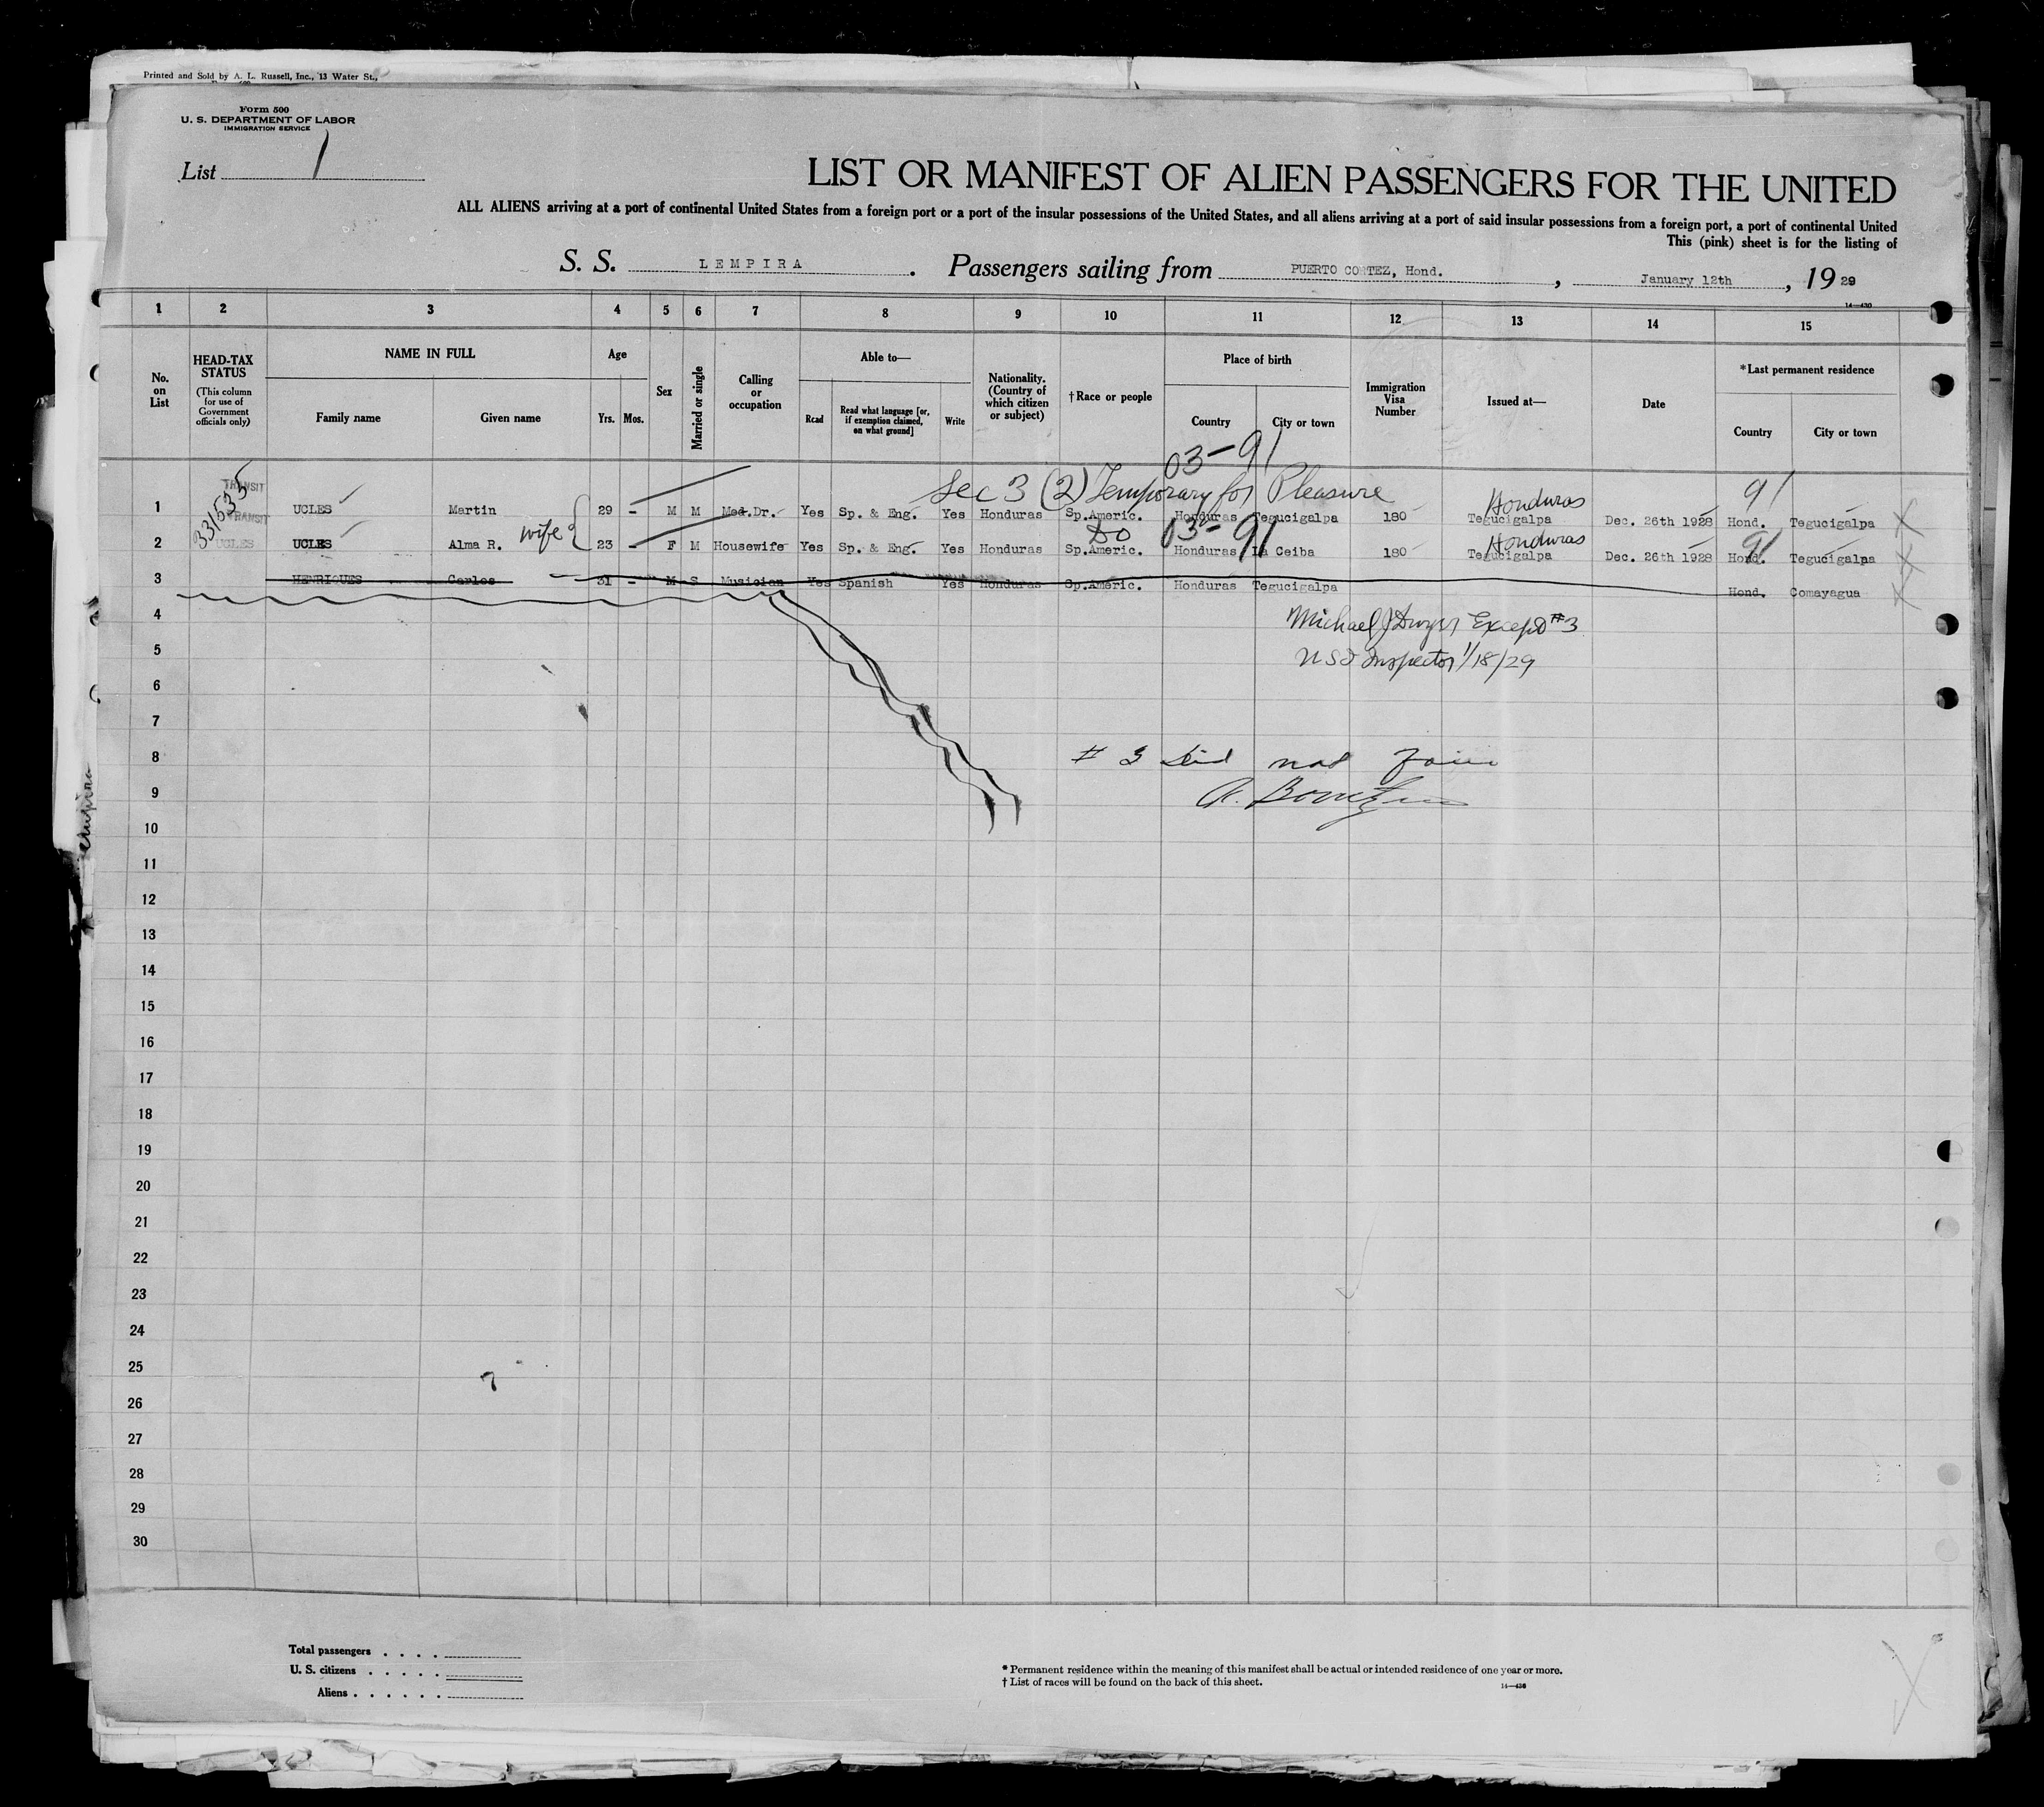 Printed and Sold by A. L. Russell, Inc., 13 Water St.,
Form 500
U. S. DEPARTMENT OF LABOR
IMMIGRATION SERVICE
List 1
LIST OR MANIFEST OF ALIEN PASSENGERS FOR THE UNITED
ALL ALIENS arriving at a port of continental United States from a foreign port or a port of the insular possessions of the United States, and all aliens arriving at a port of said insular possessions from a foreign port, a port of continental United
This (pink) sheet is for the listing of
S. S. LEMPIRA. Passengers sailing from PUERTO CORTEZ, Hond., January 12th, 1929
14—430
1 2 3 4 5 6 7 8 9 10 11 12 13 14 15
No. on List
HEAD-TAX STATUS
(This column for use of Government officials only)
NAME IN FULL
Family name Given name
Age
Yrs. Mos.
Sex
Married or single
Calling or occupation
Able to—
Read
Read what language [or, if exemption claimed, on what ground]
Write
Nationality. (Country of which citizen or subject)
†Race or people
Place of birth
Country City or town
Immigration Visa Number
Issued at—
Date
*Last permanent residence
Country City or town
03-91
Sec 3 (2) Temporary for Pleasure
Honduras
91
TRANSIT
331535
1 UCLES Martin 29 - M M Med.Dr. Yes Sp. & Eng. Yes Honduras Sp.Americ. Honduras Tegucigalpa 180 Tegucigalpa Dec. 26th 1928 Hond. Tegucigalpa X
TRANSIT
wife
Do 03-91
Honduras
91
2 UCLES UCLES Alma R. 23 - F M Housewife Yes Sp. & Eng. Yes Honduras Sp.Americ. Honduras La Ceiba 180 Tegucigalpa Dec. 26th 1928 Hond. Tegucigalpa X
3 HENRIQUES Carlos 31 - M S Musician Yes Spanish Yes Honduras Sp.Americ. Honduras Tegucigalpa Hond. Comayagua X
4
Michael J Dwyer Except #3
5
U S I Inspector 1/18/29
6
7
8
# 3 Did not Join
9
10
11
12
13
14
15
16
17
18
19
20
21
22
23
24
25
26
27
28
29
30
Total passengers . . . .
U. S. citizens . . . . .
Aliens . . . . . .
* Permanent residence within the meaning of this manifest shall be actual or intended residence of one year or more.
† List of races will be found on the back of this sheet.
14—430
Lempira